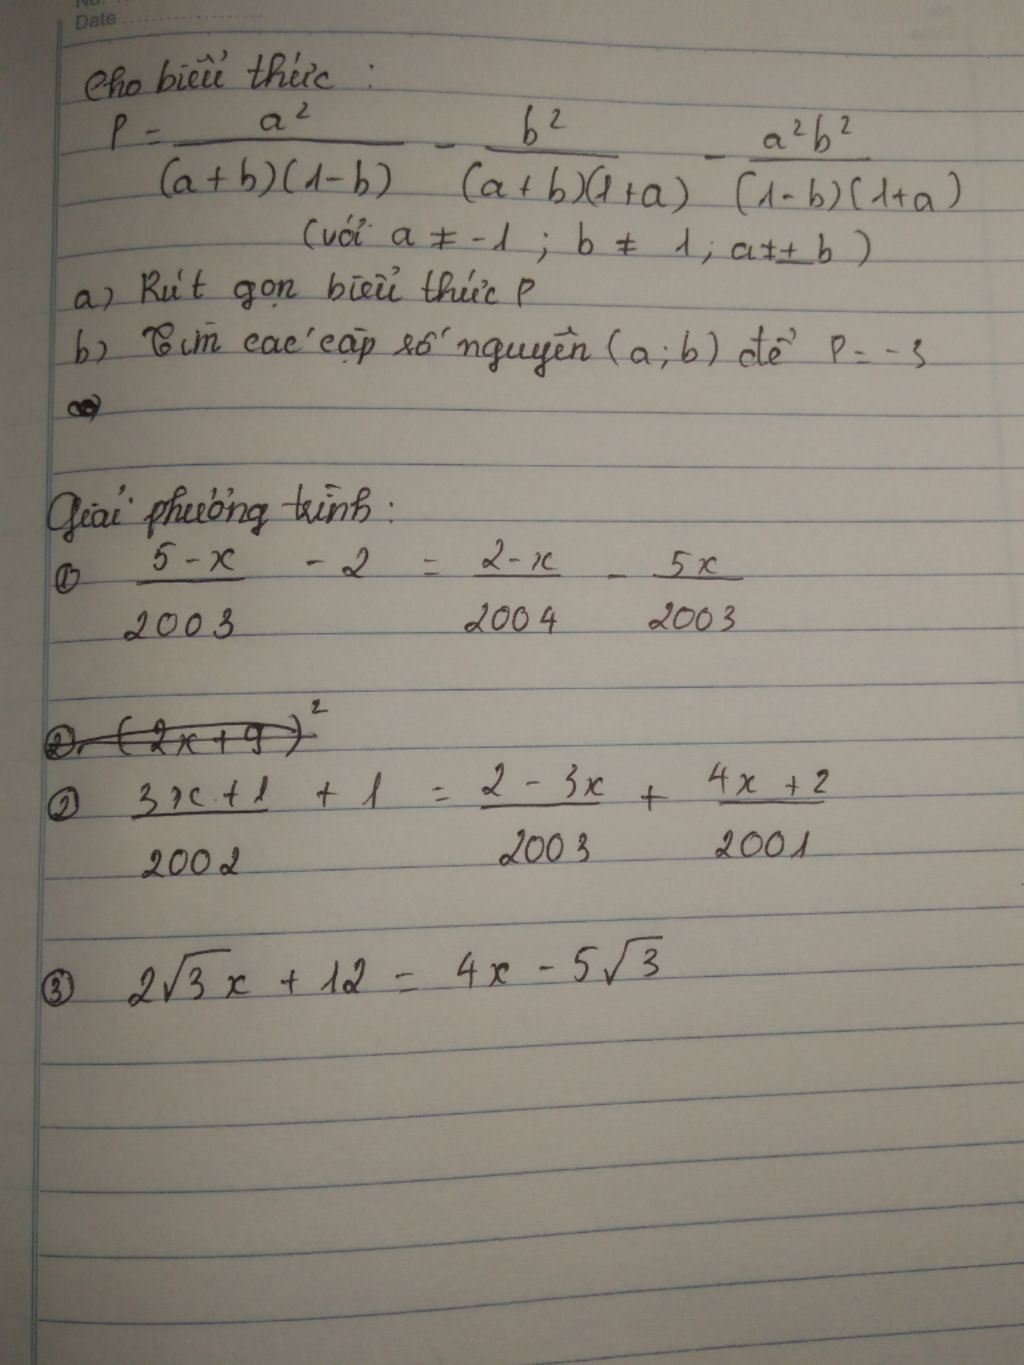 No.
Date
Cho biểu thức :
P = a²/((a+b)(1-b)) - b²/((a+b)(1+a)) - a²b²/((1-b)(1+a))
(với a ≠ -1 ; b ≠ 1 ; a ≠ ± b )
a) Rút gọn biểu thức P
b) Tìm các cặp số nguyên (a;b) để P = -3
Giải phương trình :
① (5-x)/2003 - 2 = (2-x)/2004 - 5x/2003
2. (2x+9)²
② (3x+1)/2002 + 1 = (2-3x)/2003 + (4x+2)/2001
③ 2√3x + 12 = 4x - 5√3